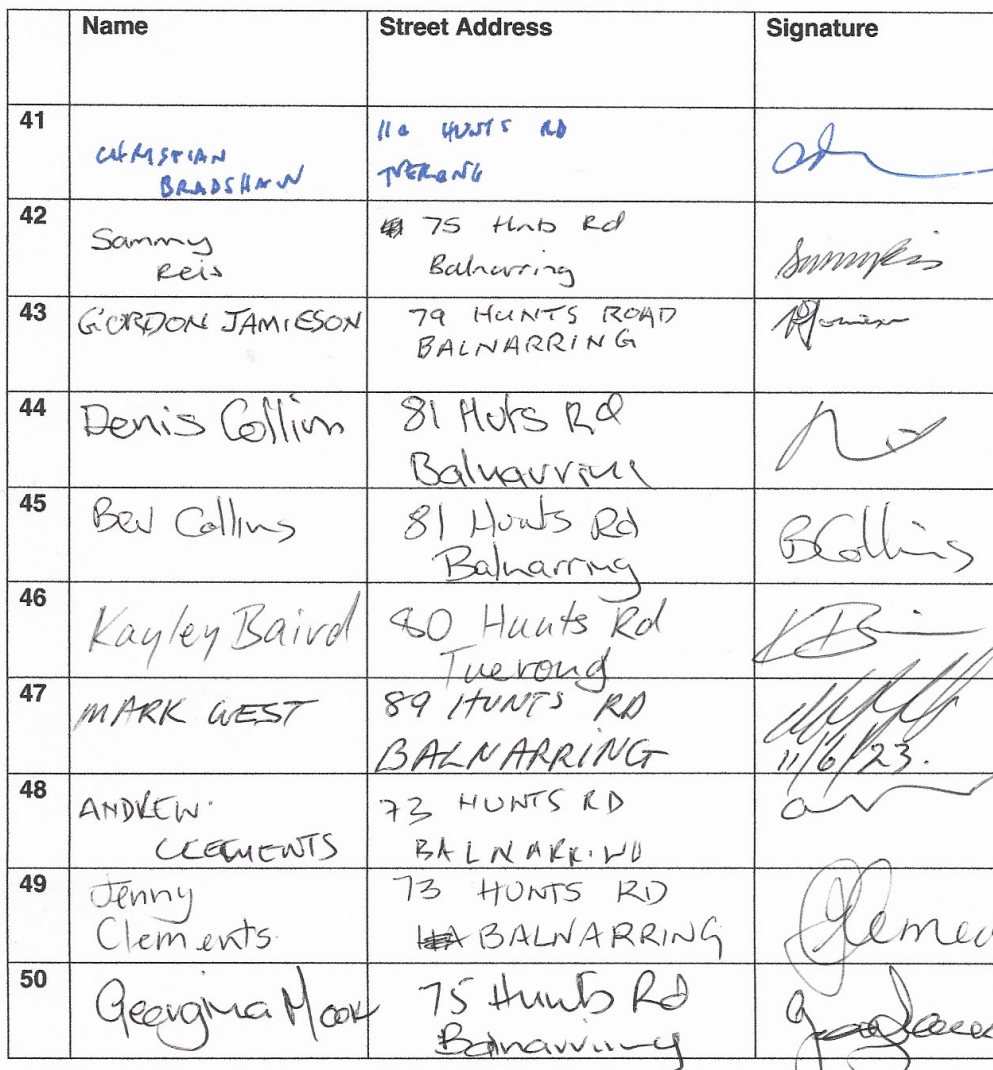 Name Street Address Signature
41
CHRISTIAN
BRADSHAW
HUNTS RD
TUERONG
42
Sammy
Reis
75 Hunts Rd
Balnarring
43
GORDON JAMIESON
79 HUNTS ROAD
BALNARRING
44
Denis Collins
81 Huts Rd
Balnarring
45
Bev Collins
81 Hunts Rd
Balnarring
BCollins
46
Kayley Baird
80 Hunts Rd
Tuerong
47
MARK WEST
89 HUNTS RD
BALNARRING
11/6/23.
48
ANDREW
CLEMENTS
73 HUNTS RD
BALNARRING
49
Jenny
Clements
73 HUNTS RD
BALNARRING
50
Georgina
75 Hunts Rd
Balnarring